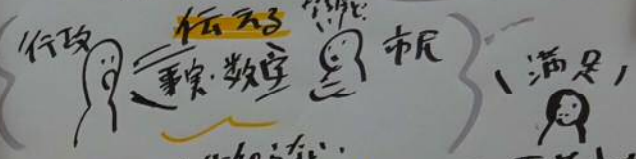 行政
伝える
事実・数字
市民
満足